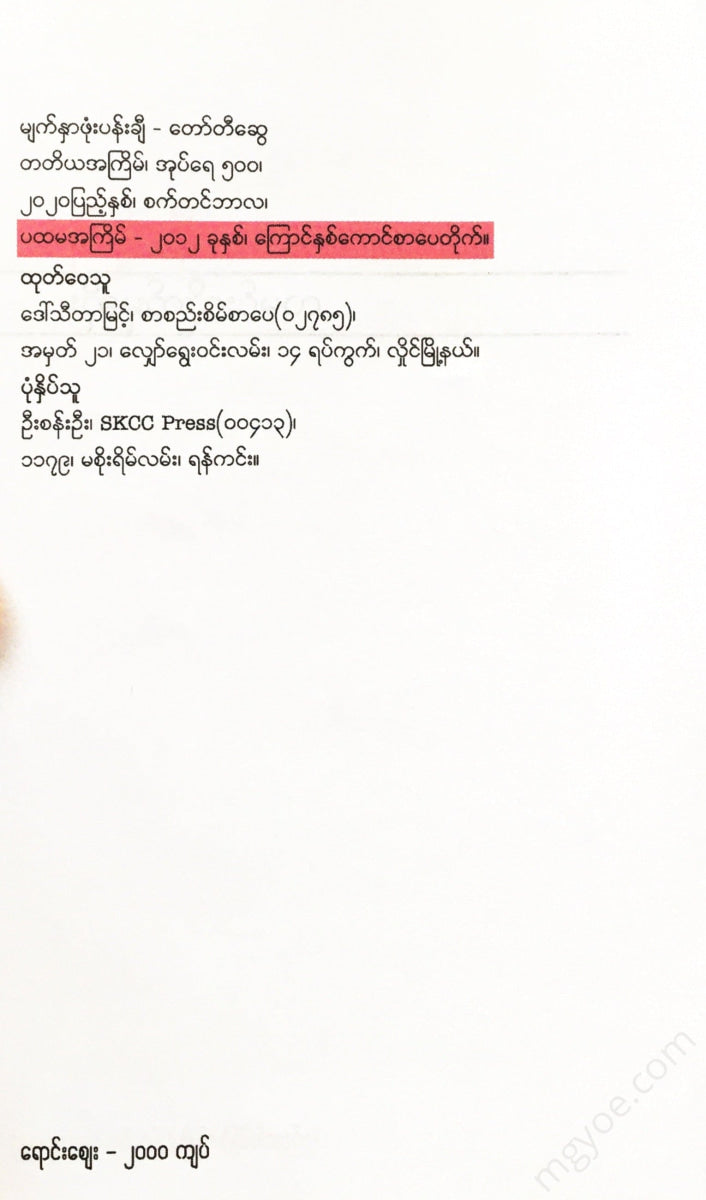 မျက်နှာဖုံးပန်းချီ - တော်တီဆွေ
တတိယအကြိမ်၊ အုပ်ရေ ၅၀၀၊
၂၀၂၀ပြည့်နှစ်၊ စက်တင်ဘာလ၊
ပထမအကြိမ် - ၂၀၁၂ ခုနှစ်၊ ကြောင်နှစ်ကောင်စာပေတိုက်။
ထုတ်ဝေသူ
ဒေါ်သီတာမြင့်၊ စာစည်းစိမ်စာပေ(၀၂၇၈၅)၊
အမှတ် ၂၁၊ လျှော်ရွေးဝင်းလမ်း၊ ၁၄ ရပ်ကွက်၊ လှိုင်မြို့နယ်။
ပုံနှိပ်သူ
ဦးစန်းဦး၊ SKCC Press(၀၀၄၁၃)၊
၁၁၇၉၊ မစိုးရိမ်လမ်း၊ ရန်ကင်း။
ရောင်းဈေး - ၂၀၀၀ ကျပ်
mgyoe.com